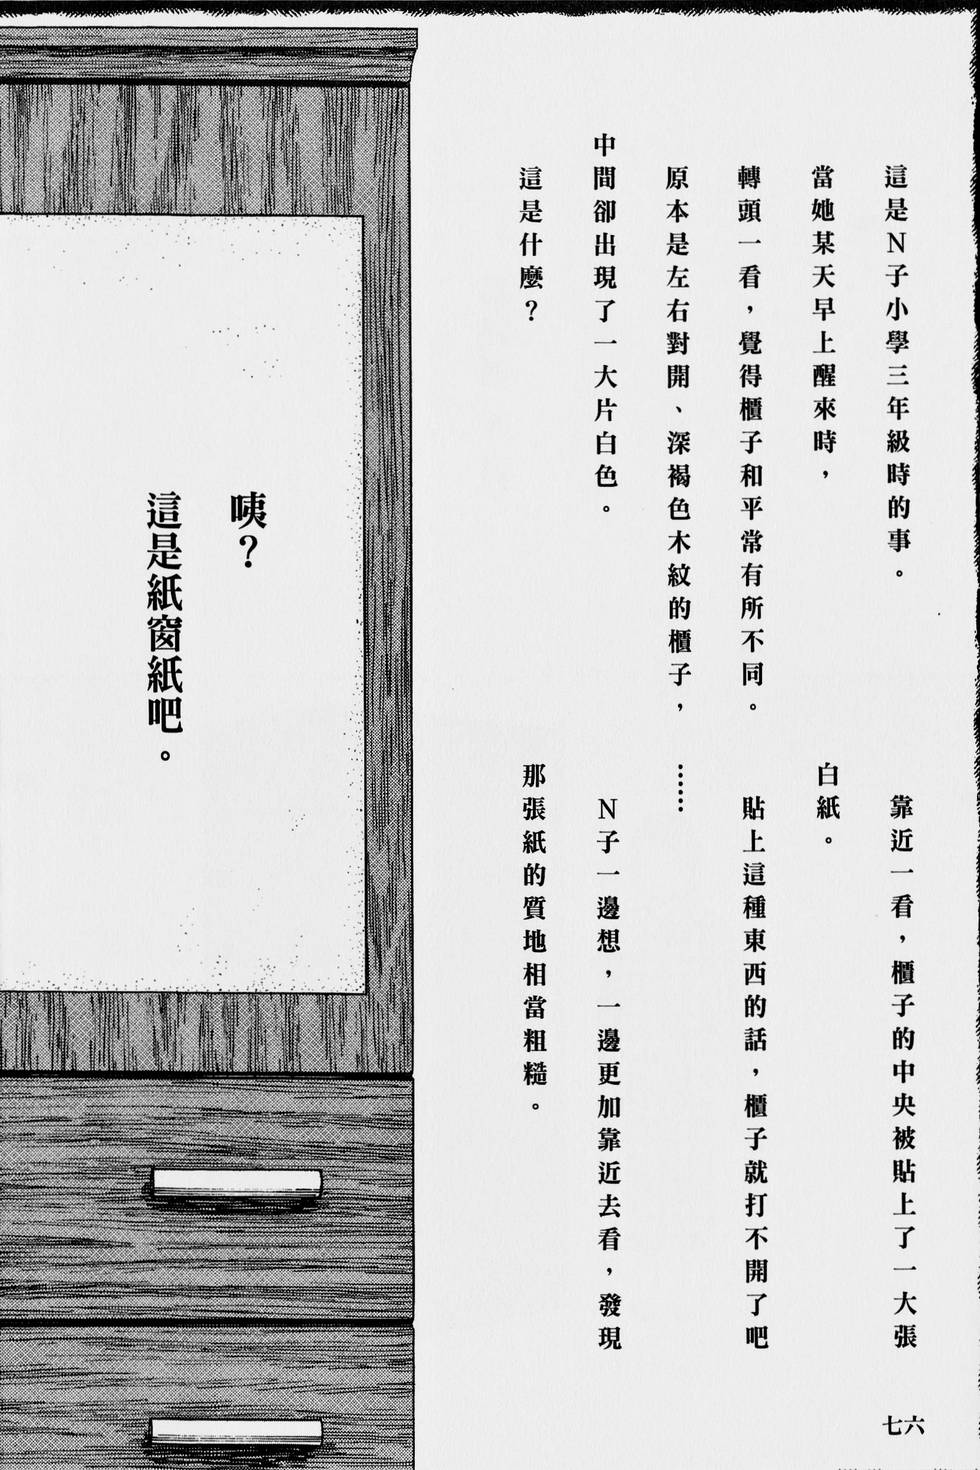 這是N子小學三年級時的事。
當她某天早上醒來時，
轉頭一看，覺得櫃子和平常有所不同。
原本是左右對開、深褐色木紋的櫃子，
中間卻出現了一大片白色。
這是什麼？
靠近一看，櫃子的中央被貼上了一大張
白紙。
貼上這種東西的話，櫃子就打不開了吧
……
N子一邊想，一邊更加靠近去看，發現
那張紙的質地相當粗糙。
咦？
這是紙窗紙吧。
七六